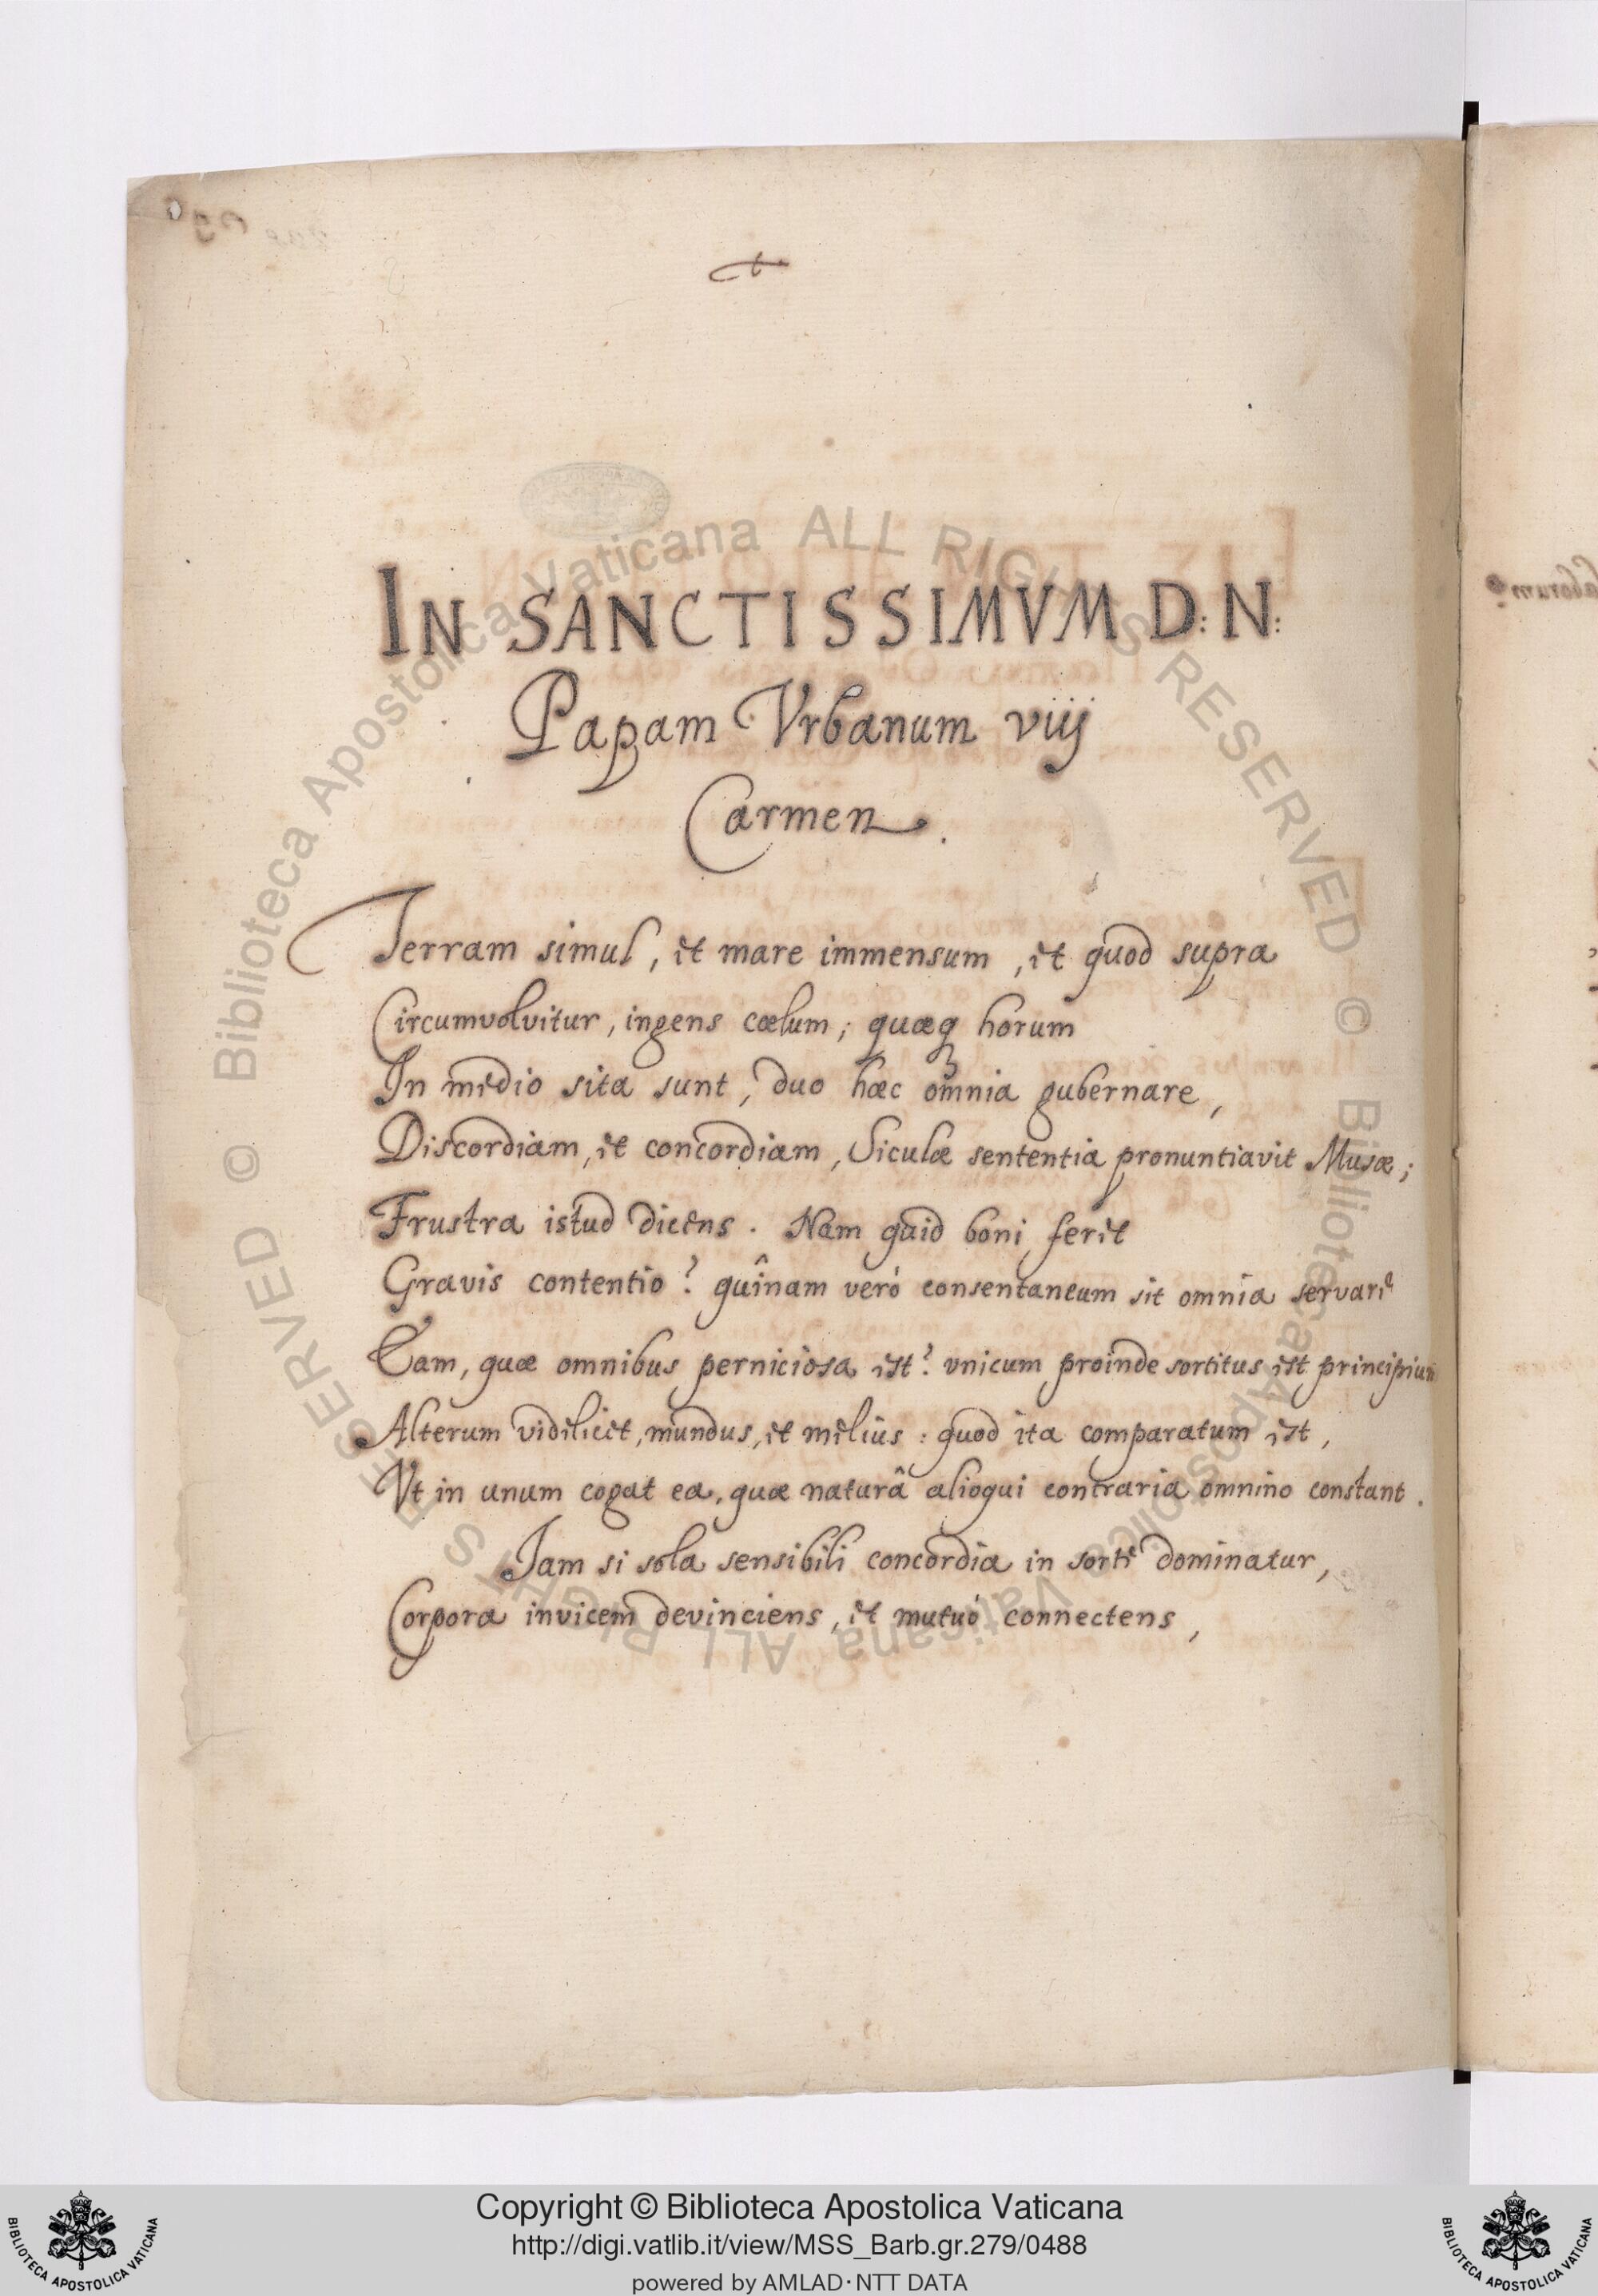 IN SANCTISSIMVM D: N:
Papam Vrbanum viij
Carmen.
Terram simul, et mare immensum, et quod supra
Circumvolvitur, ingens cœlum; quæq horum
In medio sita sunt, duo hæc omnia gubernare,
Discordiam, et concordiam, Siculæ sententia pronuntiavit Musæ;
Frustra istud dicens. Nam quid boni feret
Gravis contentio? quînam verò consentaneum sit omnia servare
Eam, quæ omnibus perniciosa est? vnicum proinde sortitus est principium
Alterum videlicet, mundus, et melius: quod ita comparatum est,
Vt in unum cogat ea, quæ naturâ alioqui contraria omnino constant.
Iam si sola sensibili concordia in sorte dominatur,
Corpora invicem devinciens, et mutuò connectens,
© Biblioteca Apostolica Vaticana ALL RIGHTS RESERVED © Biblioteca Apostolica Vaticana ALL RIGHTS RESERVED
Copyright © Biblioteca Apostolica Vaticana
http://digi.vatlib.it/view/MSS_Barb.gr.279/0488
powered by AMLAD·NTT DATA
BIBLIOTECA APOSTOLICA VATICANA
BIBLIOTECA APOSTOLICA VATICANA